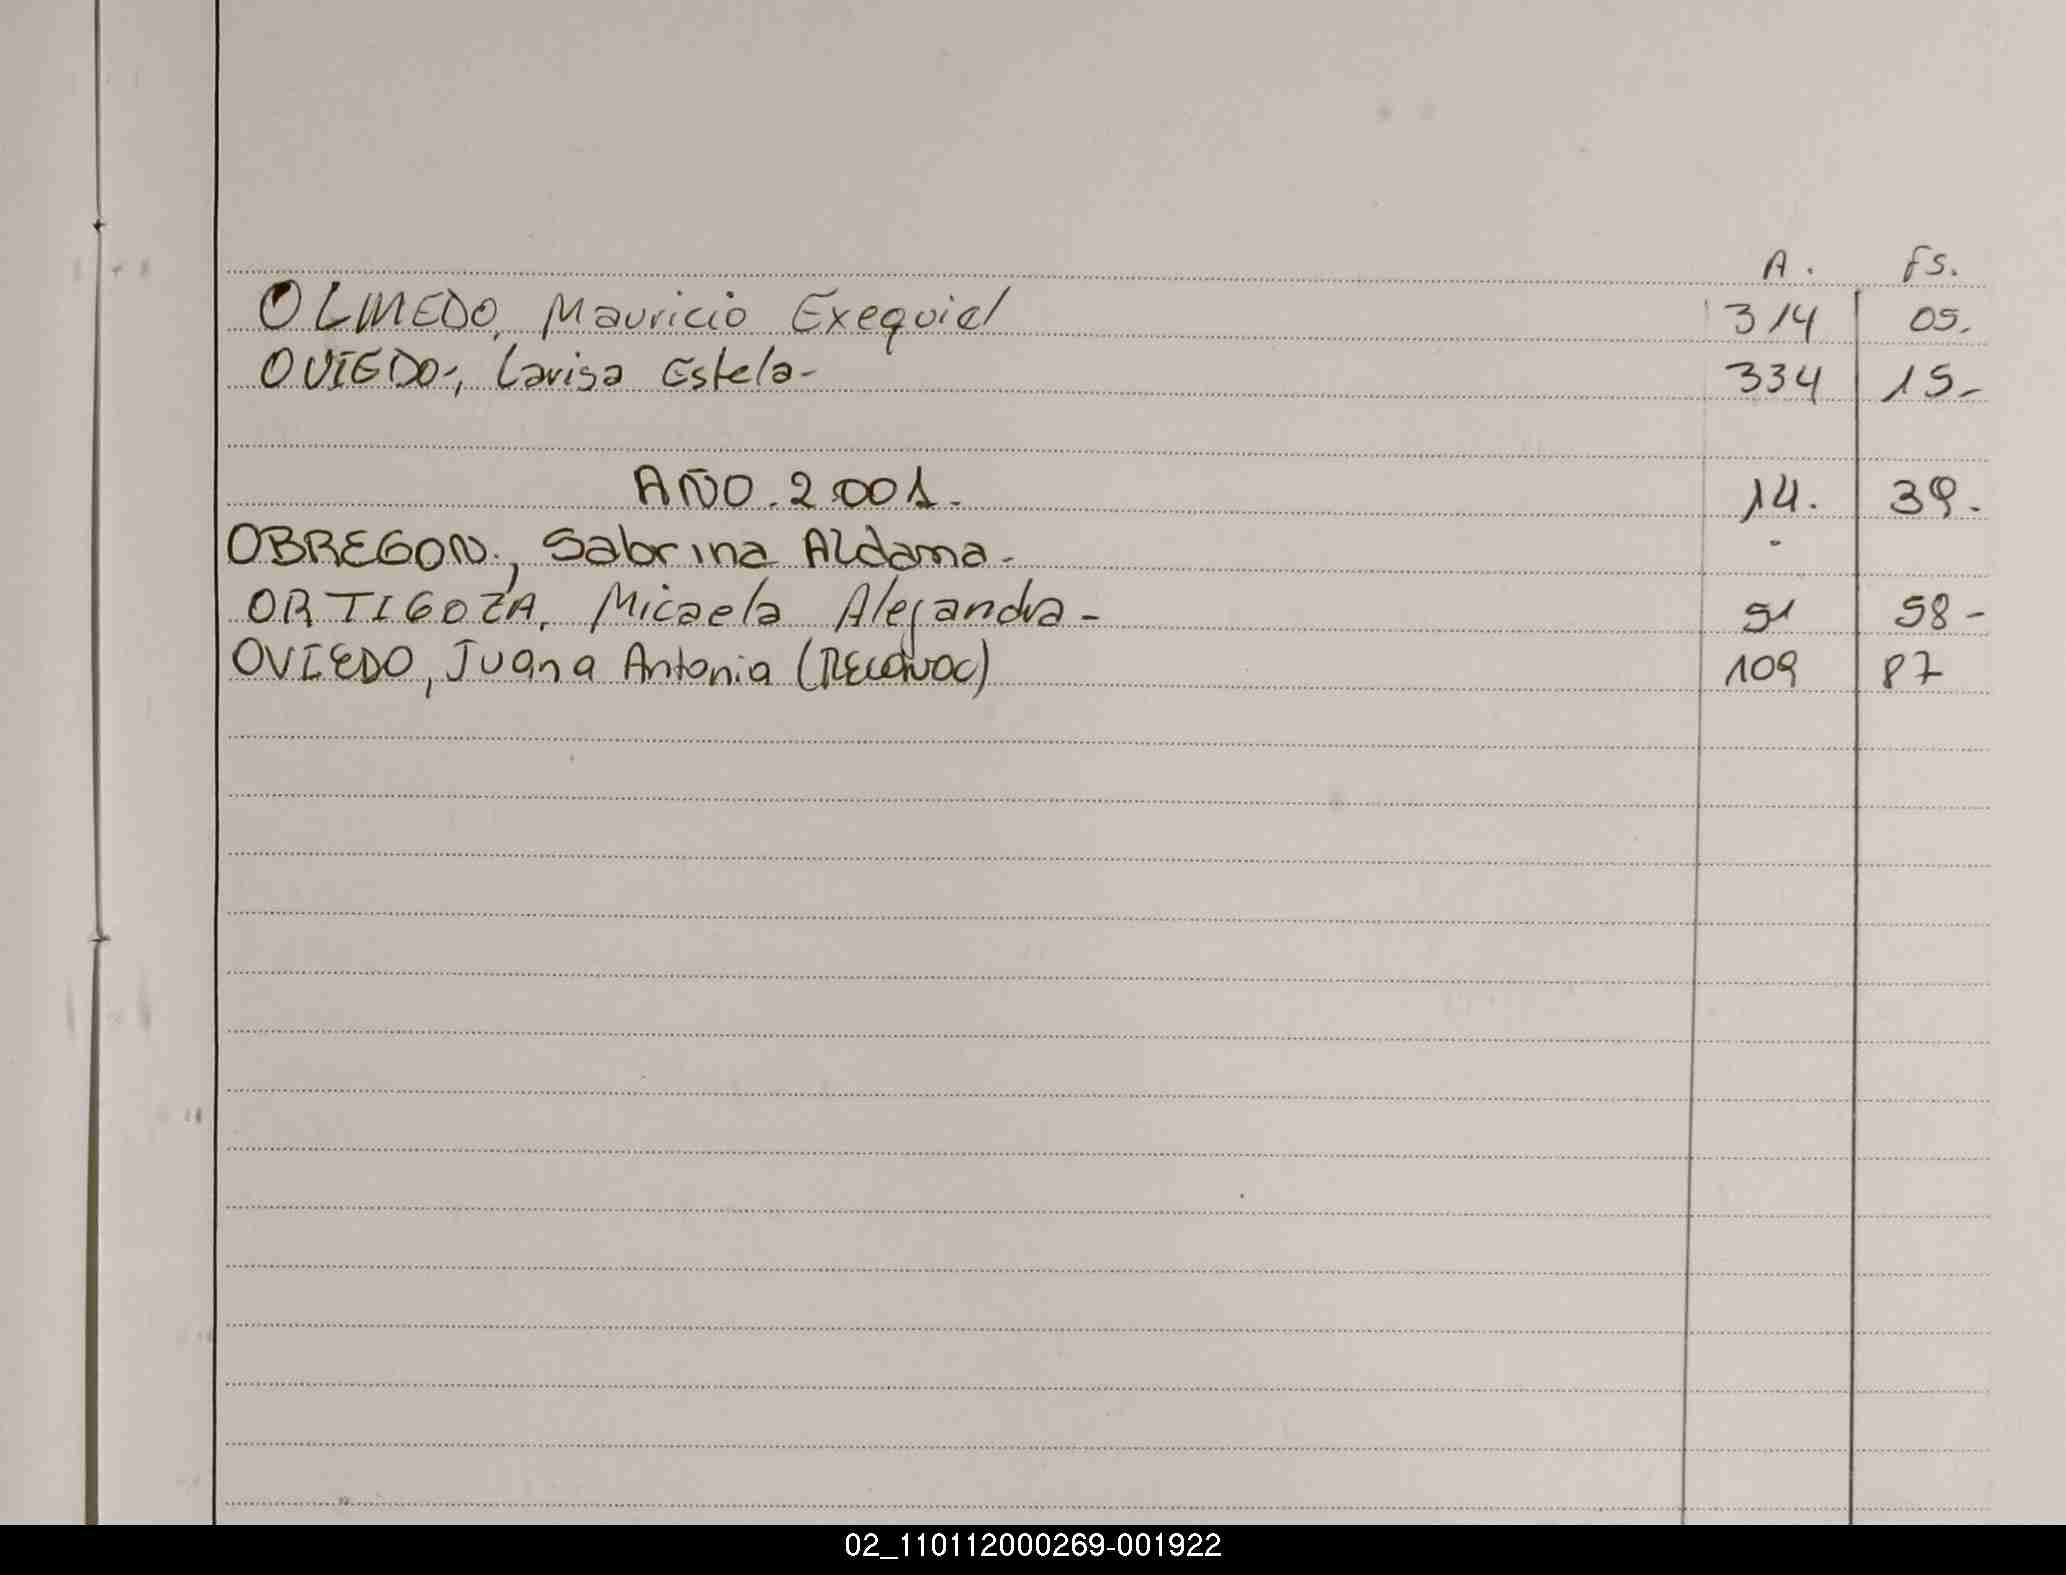 A. Fs.
OLMEDO, Mauricio Exequiel 314 05.
OVIEDO, Larisa Estela- 334 15-
AÑO.2001. 14. 39.
OBREGON., Sabrina Aldana-
ORTIGOZA, Micaela Alejandra- 51 58-
OVIEDO, Juana Antonia (Reconoc) 109 87
02_110112000269-001922